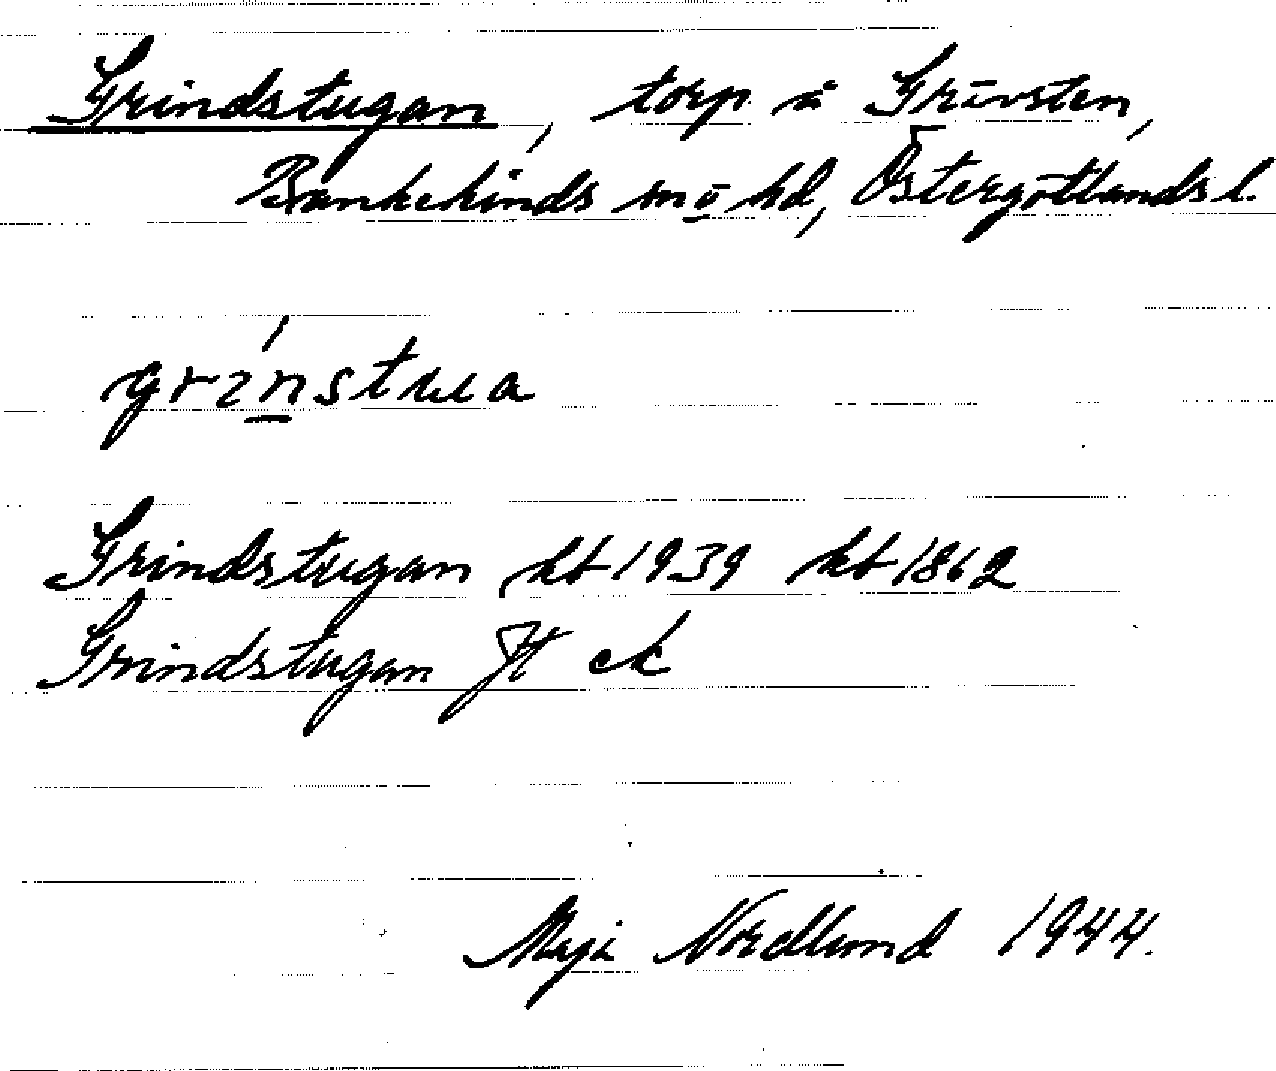 Grindstugan, torp i Grävsten,
Bankekinds sn o hd, Östergötlands l.
grin̲stua
Grindstugan kb 1939 kb 1862
Grindstugan Jt ek
Maja Nordlund 1944.